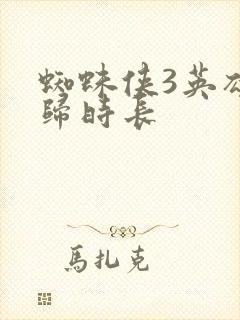 蜘蛛侠3英
歸時長
馬扎克